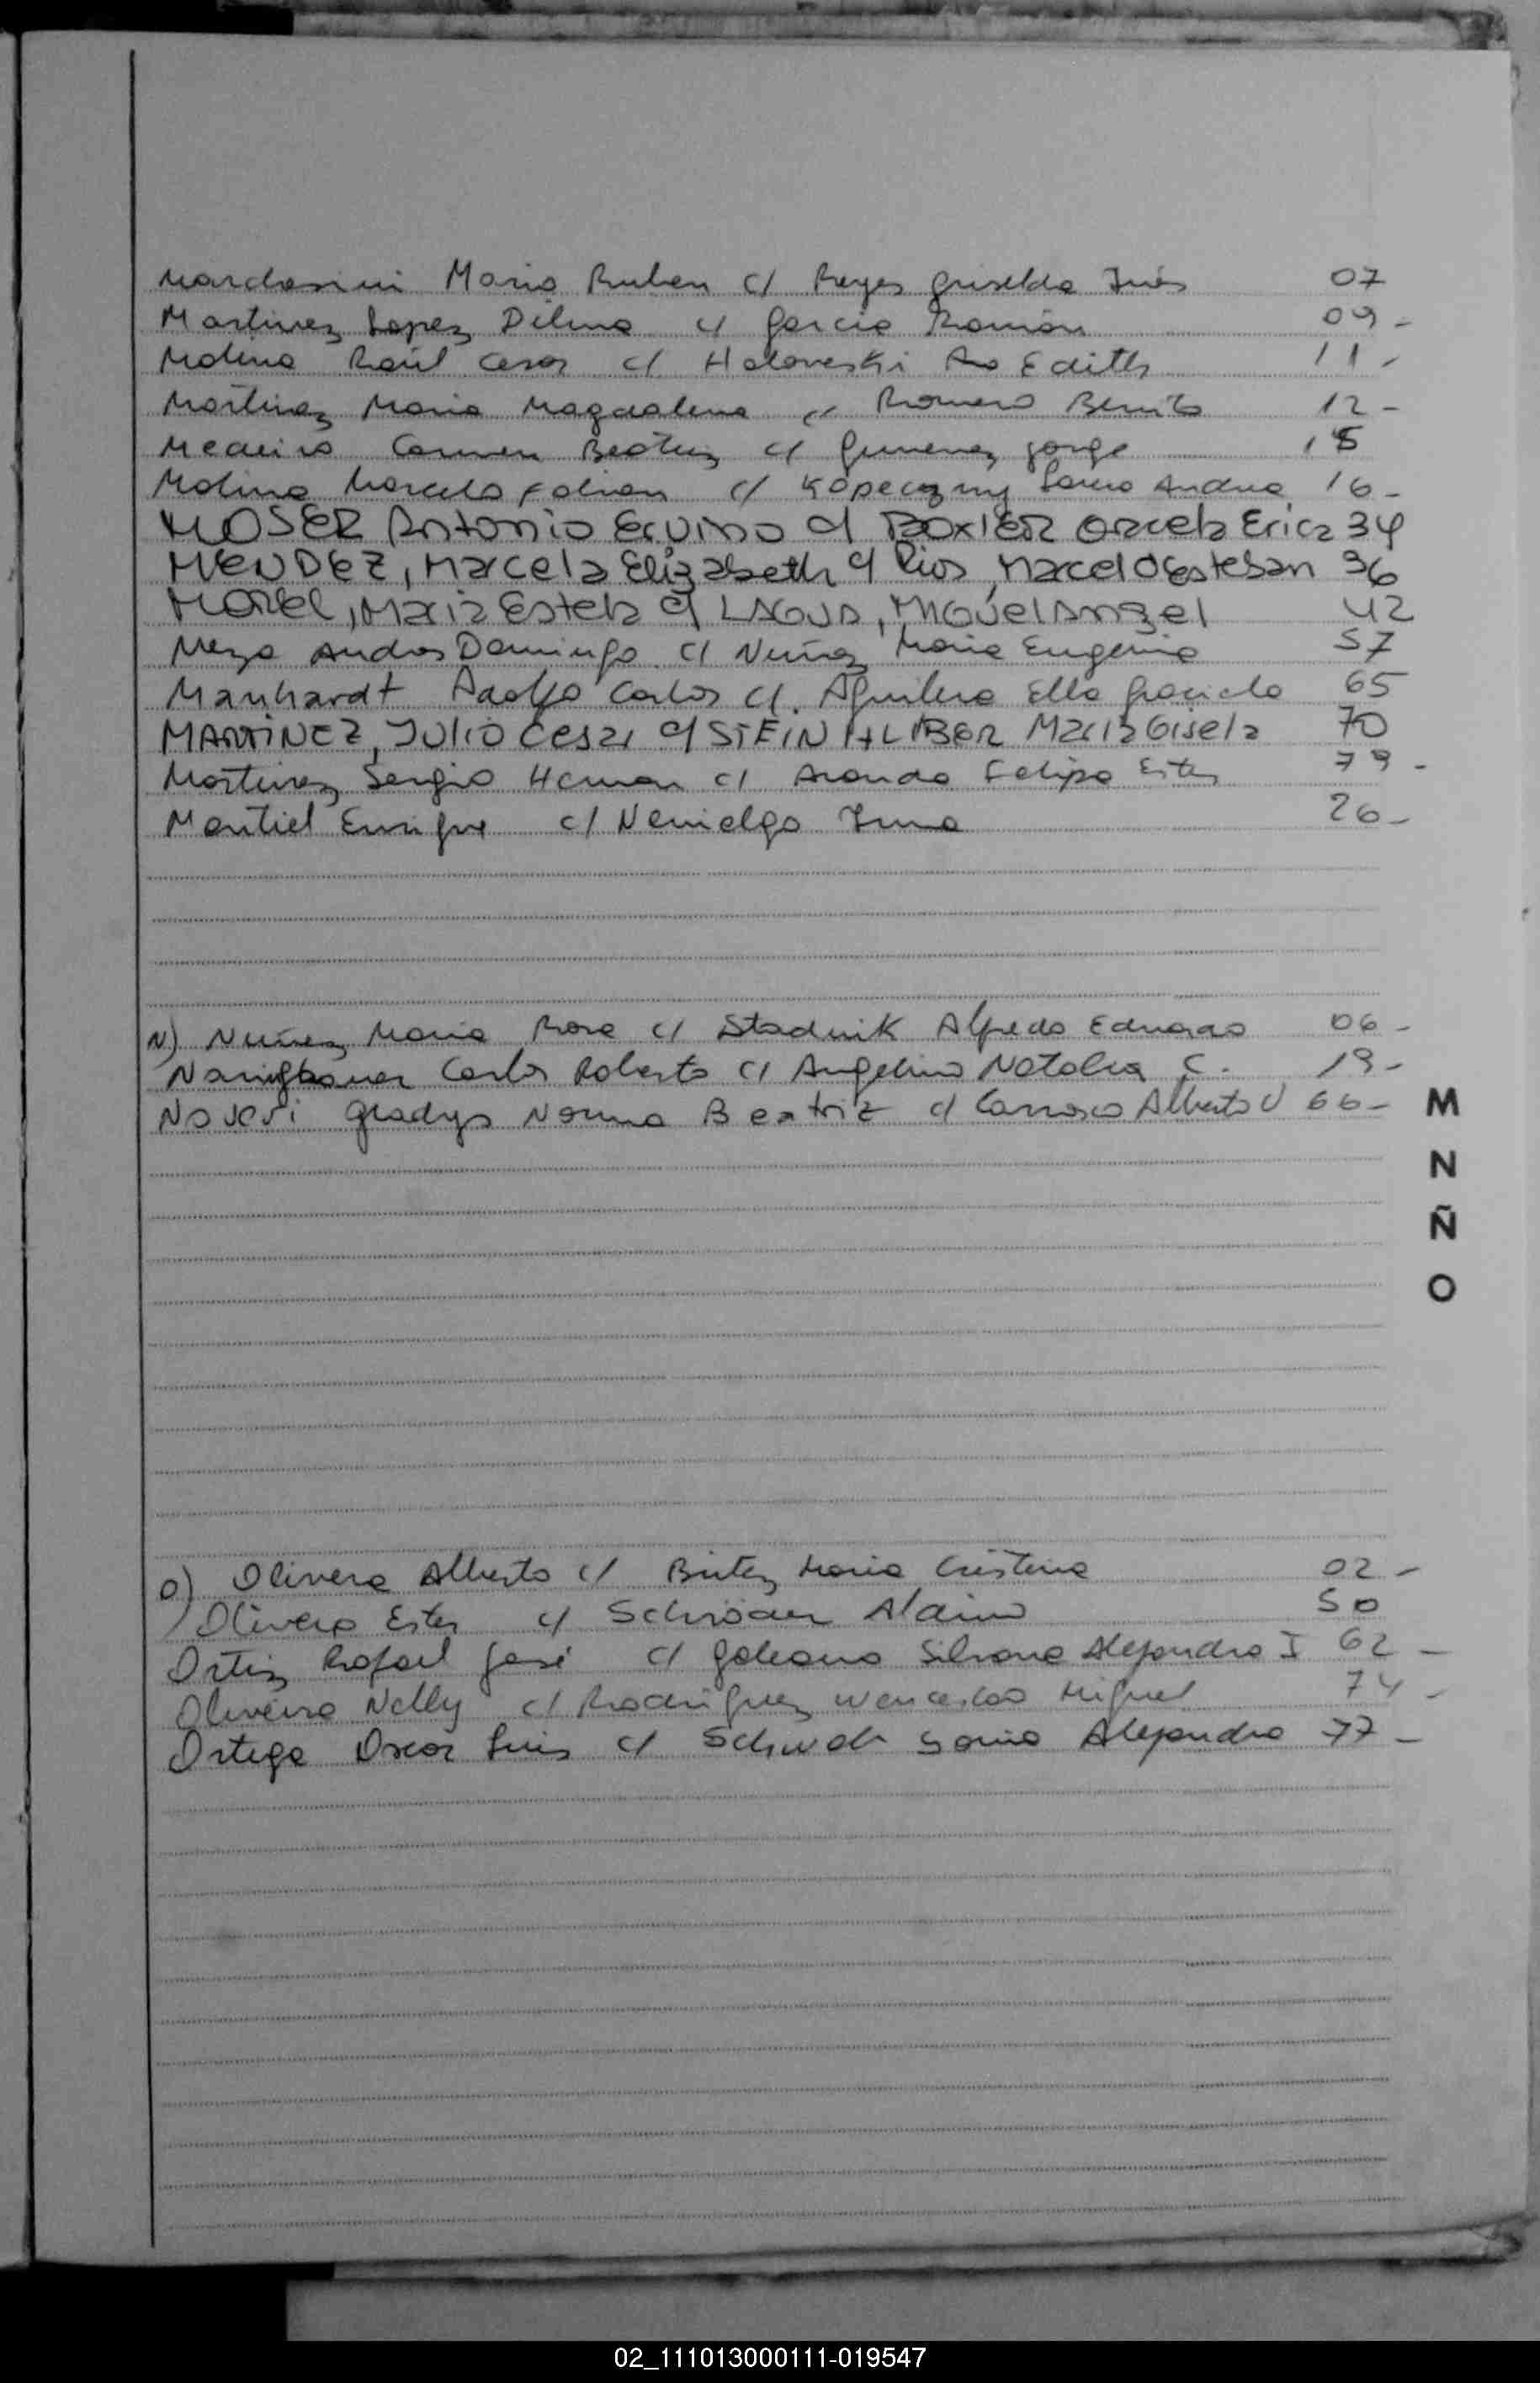 Marchesini Mario Ruben c/ Reyes Griselda Inés 07
Martinez Lopez Dilma c/ Garcia Ramón 09-
Molina Raúl Cesar c/ Holoveski Edith 11-
Martinez Maria Magdalena c/ Romero Benito 12-
Medeiro Carmen Beatriz c/ Gimenez Jorge 15
Molina Marcelo Fabian c/ Kopeczny Andrea 16-
MOSER Antonio Ecuino c/ BOXLER Graciela Erica 34
MENDEZ, Marcela Elizabeth c/ Rios, Marcelo Esteban 36
MOREL, Maria Estela c/ LAGUNA, Miguel Angel 42
Meza Andres Domingo c/ Nuñez Maria Eugenia 57
Manhardt Adolfo Carlos c/ Aguilera Ella Graciela 65
MARTINEZ, Julio Cesar c/ STEINHLIBER Maria Gisela 70
Martinez Sergio Hernan c/ Aranda Felipa Ester 79-
Montiel Enrique c/ Irma 26-
N) Nuñez Maria Rosa c/ Stadnik Alfredo Eduardo 06-
Carlos Roberto c/ Angelino Natalia C. 19-
Gladys Norma Beatriz c/ Carrasco Alberto 66-
M
N
Ñ
O
O) Olivera Alberto c/ Maria Cristina 02-
Olivera Ester c/ Schröder Aldino 50
Ortiz Rafael José c/ Galeano Silvana Alejandra I 62-
Oliveira Nelly c/ Rodriguez Wenceslao Miguel 74-
Ortega Oscar Luis c/ Sonia Alejandra 77-
02_111013000111-019547